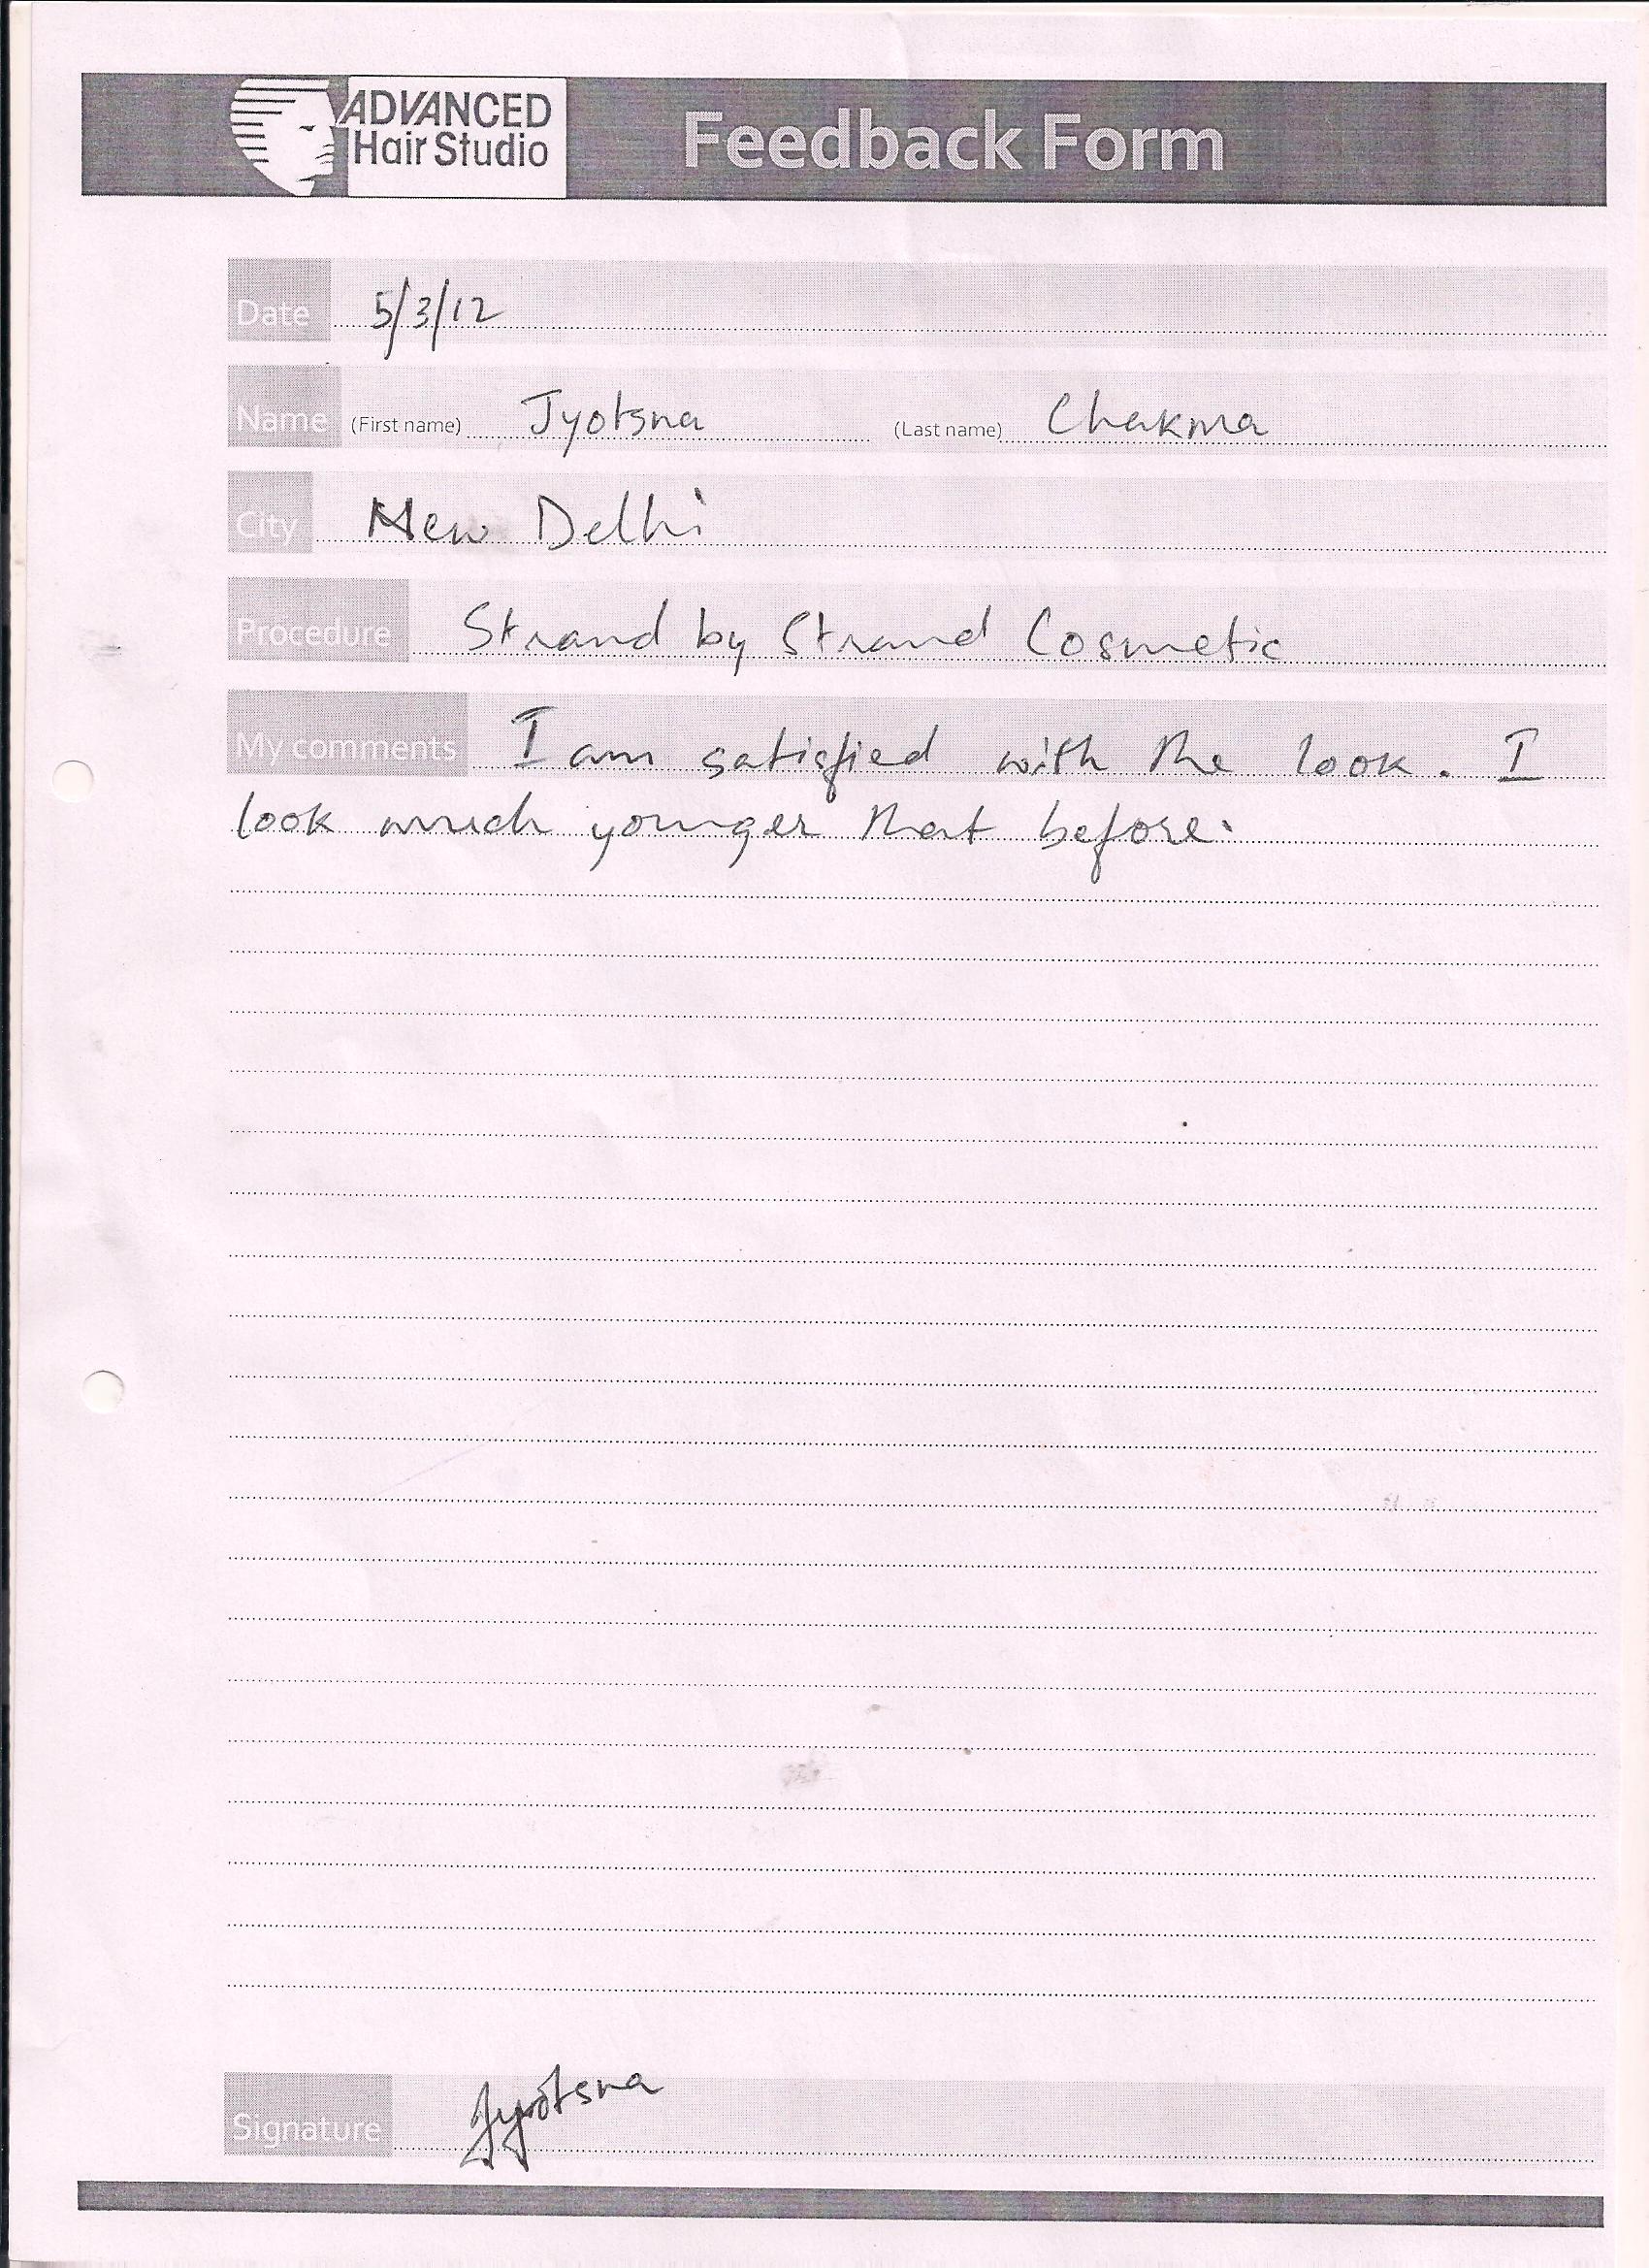 ADVANCED
Hair Studio
Feedback Form
Date 5/3/12
Name (First name) Jyotsna (Last name) Chakma
City New Delhi
Procedure Strand by Strand Cosmetic
My comments I am satisfied with the look. I
look much younger that before.
Signature Jyotsna